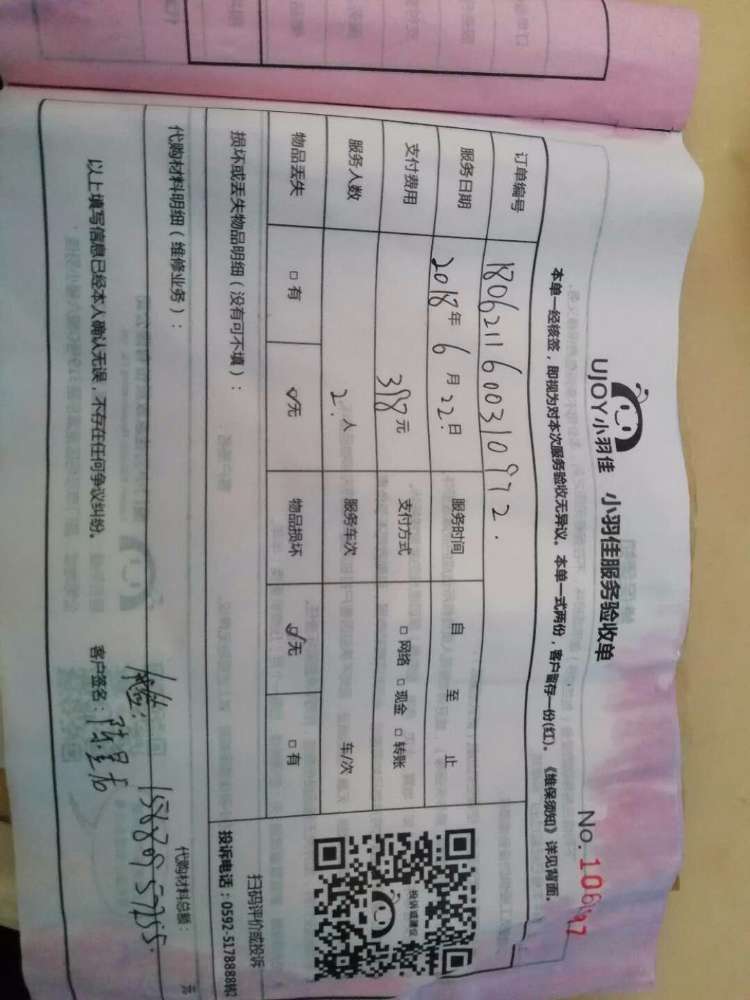 UJOY小羽佳 小羽佳服务验收单
No.
本单一经核签，即视为对本次服务验收无异议。本单一式两份，客户留存一份(红)。《维保须知》详见背面。
订单编号 1806211600310972.
服务日期 2018年6月22日 服务时间 自 至 止
支付费用 398元 支付方式 □网络 □现金 □转账
服务人数 2人 服务车次 车/次
物品丢失 □有 ☑无 物品损坏 ☑无 □有
投诉或建议
扫码评价或投诉
投诉电话：0592-5178888转2
损坏或丢失物品明细（没有可不填）：
代购材料明细（维修业务）：
代购材料总额： 元
以上填写信息已经本人确认无误，不存在任何争议纠纷。
客户签名：